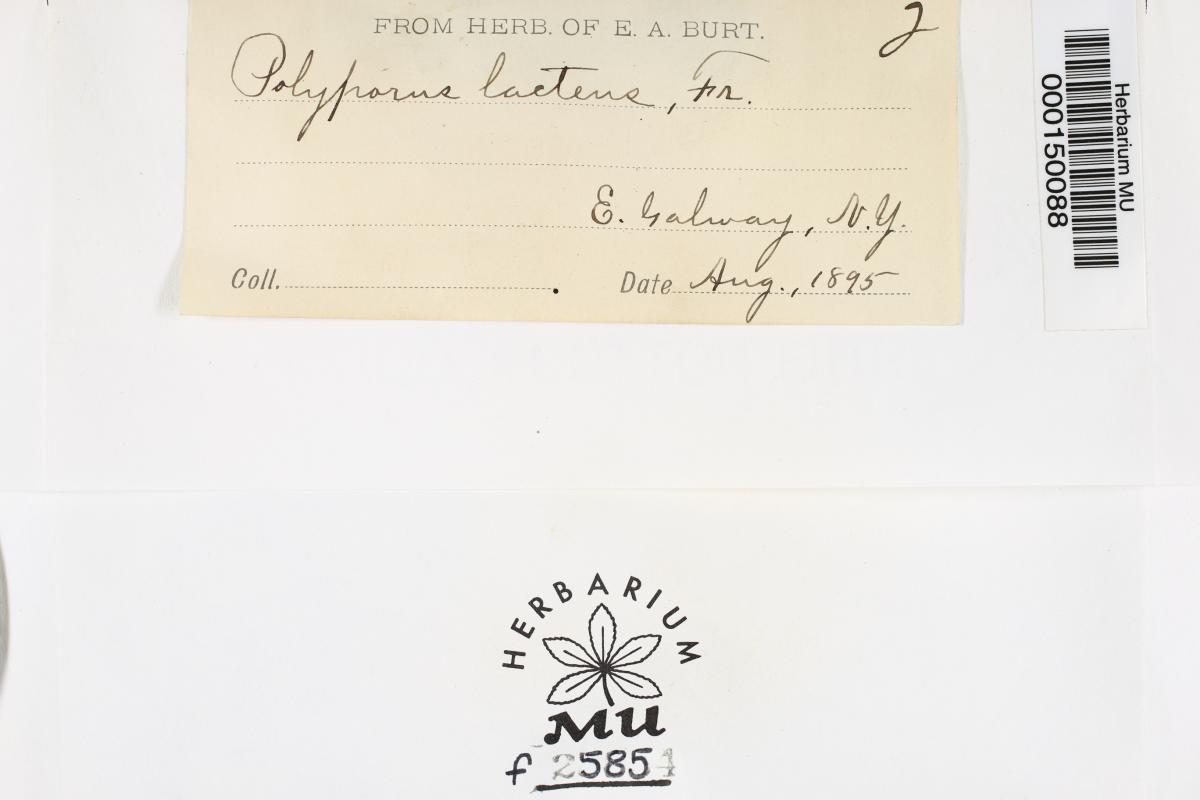 FROM HERB. OF E. A. BURT.
2
Polyporus lacteus, Fr.
E. Galway, N.Y.
Coll. .
Date Aug., 1895
Herbarium MU
000150088
HERBARIUM
MU
f 25854